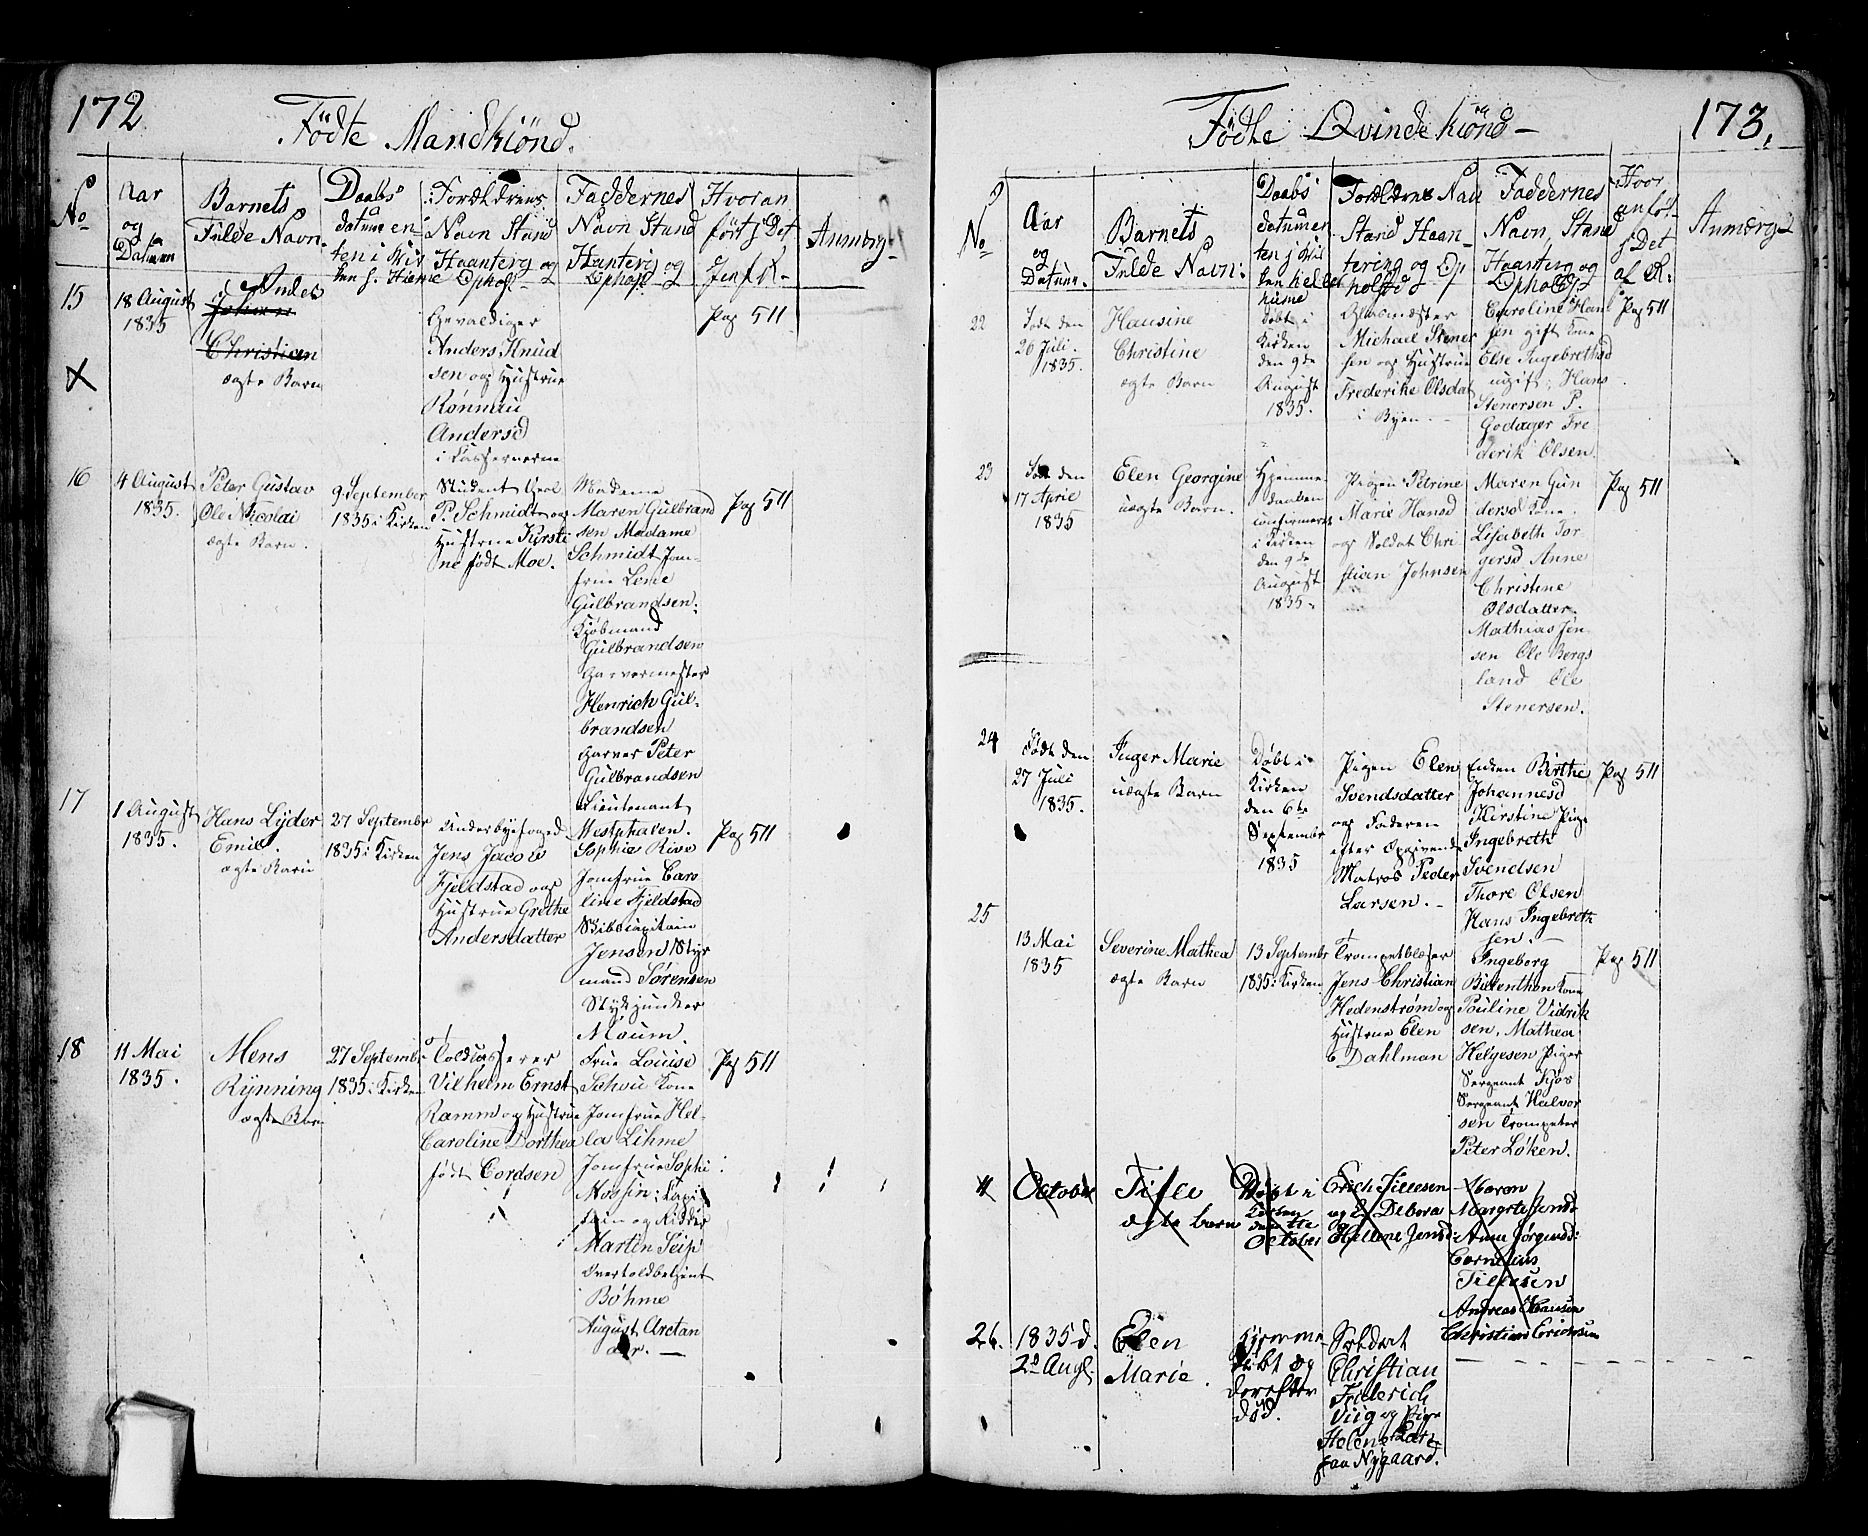 172
Födte Mandkiönd.
No
Aar
og
Datum
Barnets
Fulde Navn.
Daabs
datum en
ten i Kir
ken l. Hieme
Forældrens
Navn Stand
Haanterg og
Ophold
Faddernes
Navn Stand
Hanterig og
Ophold
Hvor an
fört j Det
Jenf. R-
Anmerg-
15
18 August
1835
Andes
Johan
Christian
ægte Barn
Gevaldiger
Anders Knud
sen og Hustrue
Rönnau
Andersd
i Cassernerne
Pag 511
16
4 August
1835.
Peter Gustav
Ole Nicolai
ægte Barn.
9 September
1835 i Kirken
Student Carl
P. Schmidt og
Hustrue Kirsti
ne født Moe.
Madame
Maren Gulbrand
sen Madame
Schmidt Jom
frue Lene
Gulbrandsen.
Kjøbmand
Gulbrandsen
Garvermester
Henrich Gul-
brandsen
Garver Peter
Gulbrandsen
Pag 511
17
1 August
1835.
Hans Lyder
Emil.
ægte Barn
27 Septembr
1835 i Kirken
Underbyefoged
Jens Jacob
Fjeldstad og
Hustrue Grethe
Andersdatter
Lieutenant
Westphaven.
Sophie Rive
Jomfrue Caro
line Fjeldstad
Skibscapitain
Jensen Styr
mand Sørensen
Stykjunker
Moum.
Pag 511
18
11 Mai
1835.
Mens
Rynning
ægte Barn
27 Septembr
1835 i Kirken
Toldcasserer
Vilhelm Ernst
Ramm og Hustrue
Caroline Dorthea
født Cordsen
Frue Louise
Schou Kone
Jomfrue Hel-
la Lihme
Jomfrue Sophi
Mossin: Capi
tain og Ridder
Martin Seip
Overtoldbetjent
Bøhme
August Arctan
der. —
Pag 511
173.
Födte Qvindekiönd —
No
Aar
og
Datum.
Barnets
Fulde Navn.
Daabs
datumer
ten j Kir
ken hel.der
hieme
Forældrens Nav
Stand Haan-
tering og Op
hold
Faddernes
Navn, Stand
Haanterg og
Ophold
Hvor
anför
j Det
af R:
Anmærg
22
Født den
26 Juli.
1835.
Hansine
Christine
ægte Barn
Døbt i
Kirken
den 9de
August
1835.
Glasmester
Michael Stener
sen og Hustrue
Frederike Olsdat
i Byen.
Caroline Han
sen gift Kone
Else Ingebrethsd
ugift; Hans
Stenersen P.
Godager Fre
derik Olsen.
Pag 511
23
Født den
17 April
1835
Elen Georgine
uægte Barn.
Hjemme
daaben
confirmeret
i Kirken
den 9de
August
1835.
Pigen Petrine
Marie Hansd
og Soldat Chri
stian Johnsen
Maren Gun
dersd Kone.
Lisabeth Tor
gersd Anne
Christine
Olsdatter.
Mathias Jen
sen Ole Bergs
land Ole
Stenersen.
Pag 511
24
Født den
27 Juli
1835.
Inger Marie
uægte Barn
Døbt i
Kirken
den 6te
Septembr
1835
Pigen Elen
Svendsdatter
og Faderen
efter Opgivende
Matros Peder
Larsen.
Enken Birthe
Johannesd
Kirstine Pige
Ingebreth
Svendsen
Thore Olsen
Hans Ingebreth
sen.
Pag 511
25
13 Mai
1835
Severine Mathea
ægte Barn
13 Septembr
1835 i Kirken
Trompetblæser
Jens Christian
Hedenstrøm og
Hustrue Elen
Dahlman
Ingeborg
Birenthen Kone
Pouline Vidrik
sen, Mathea
Helgesen Piger
Sergeant Kjos
Sergeant Halvor
sen Trompeter
Peter Løken.
Pag 511
October
ægte barn
Døbt i
Kirken
October
Erich Tillesen
og Debora
Hellene Jensd:
Maren
Margrte Jensd
Anne Jørgensd:
Cornelius
Tillesen
Andreas Hansen
Christian Erichsen
26.
1835 d.
2d Augt
Elen
Marie.
Hjemme
døbt og
derefter
død.
Soldat
Christian
Friderich
Viig og Pige
Helene Lar
paa Nygaard.